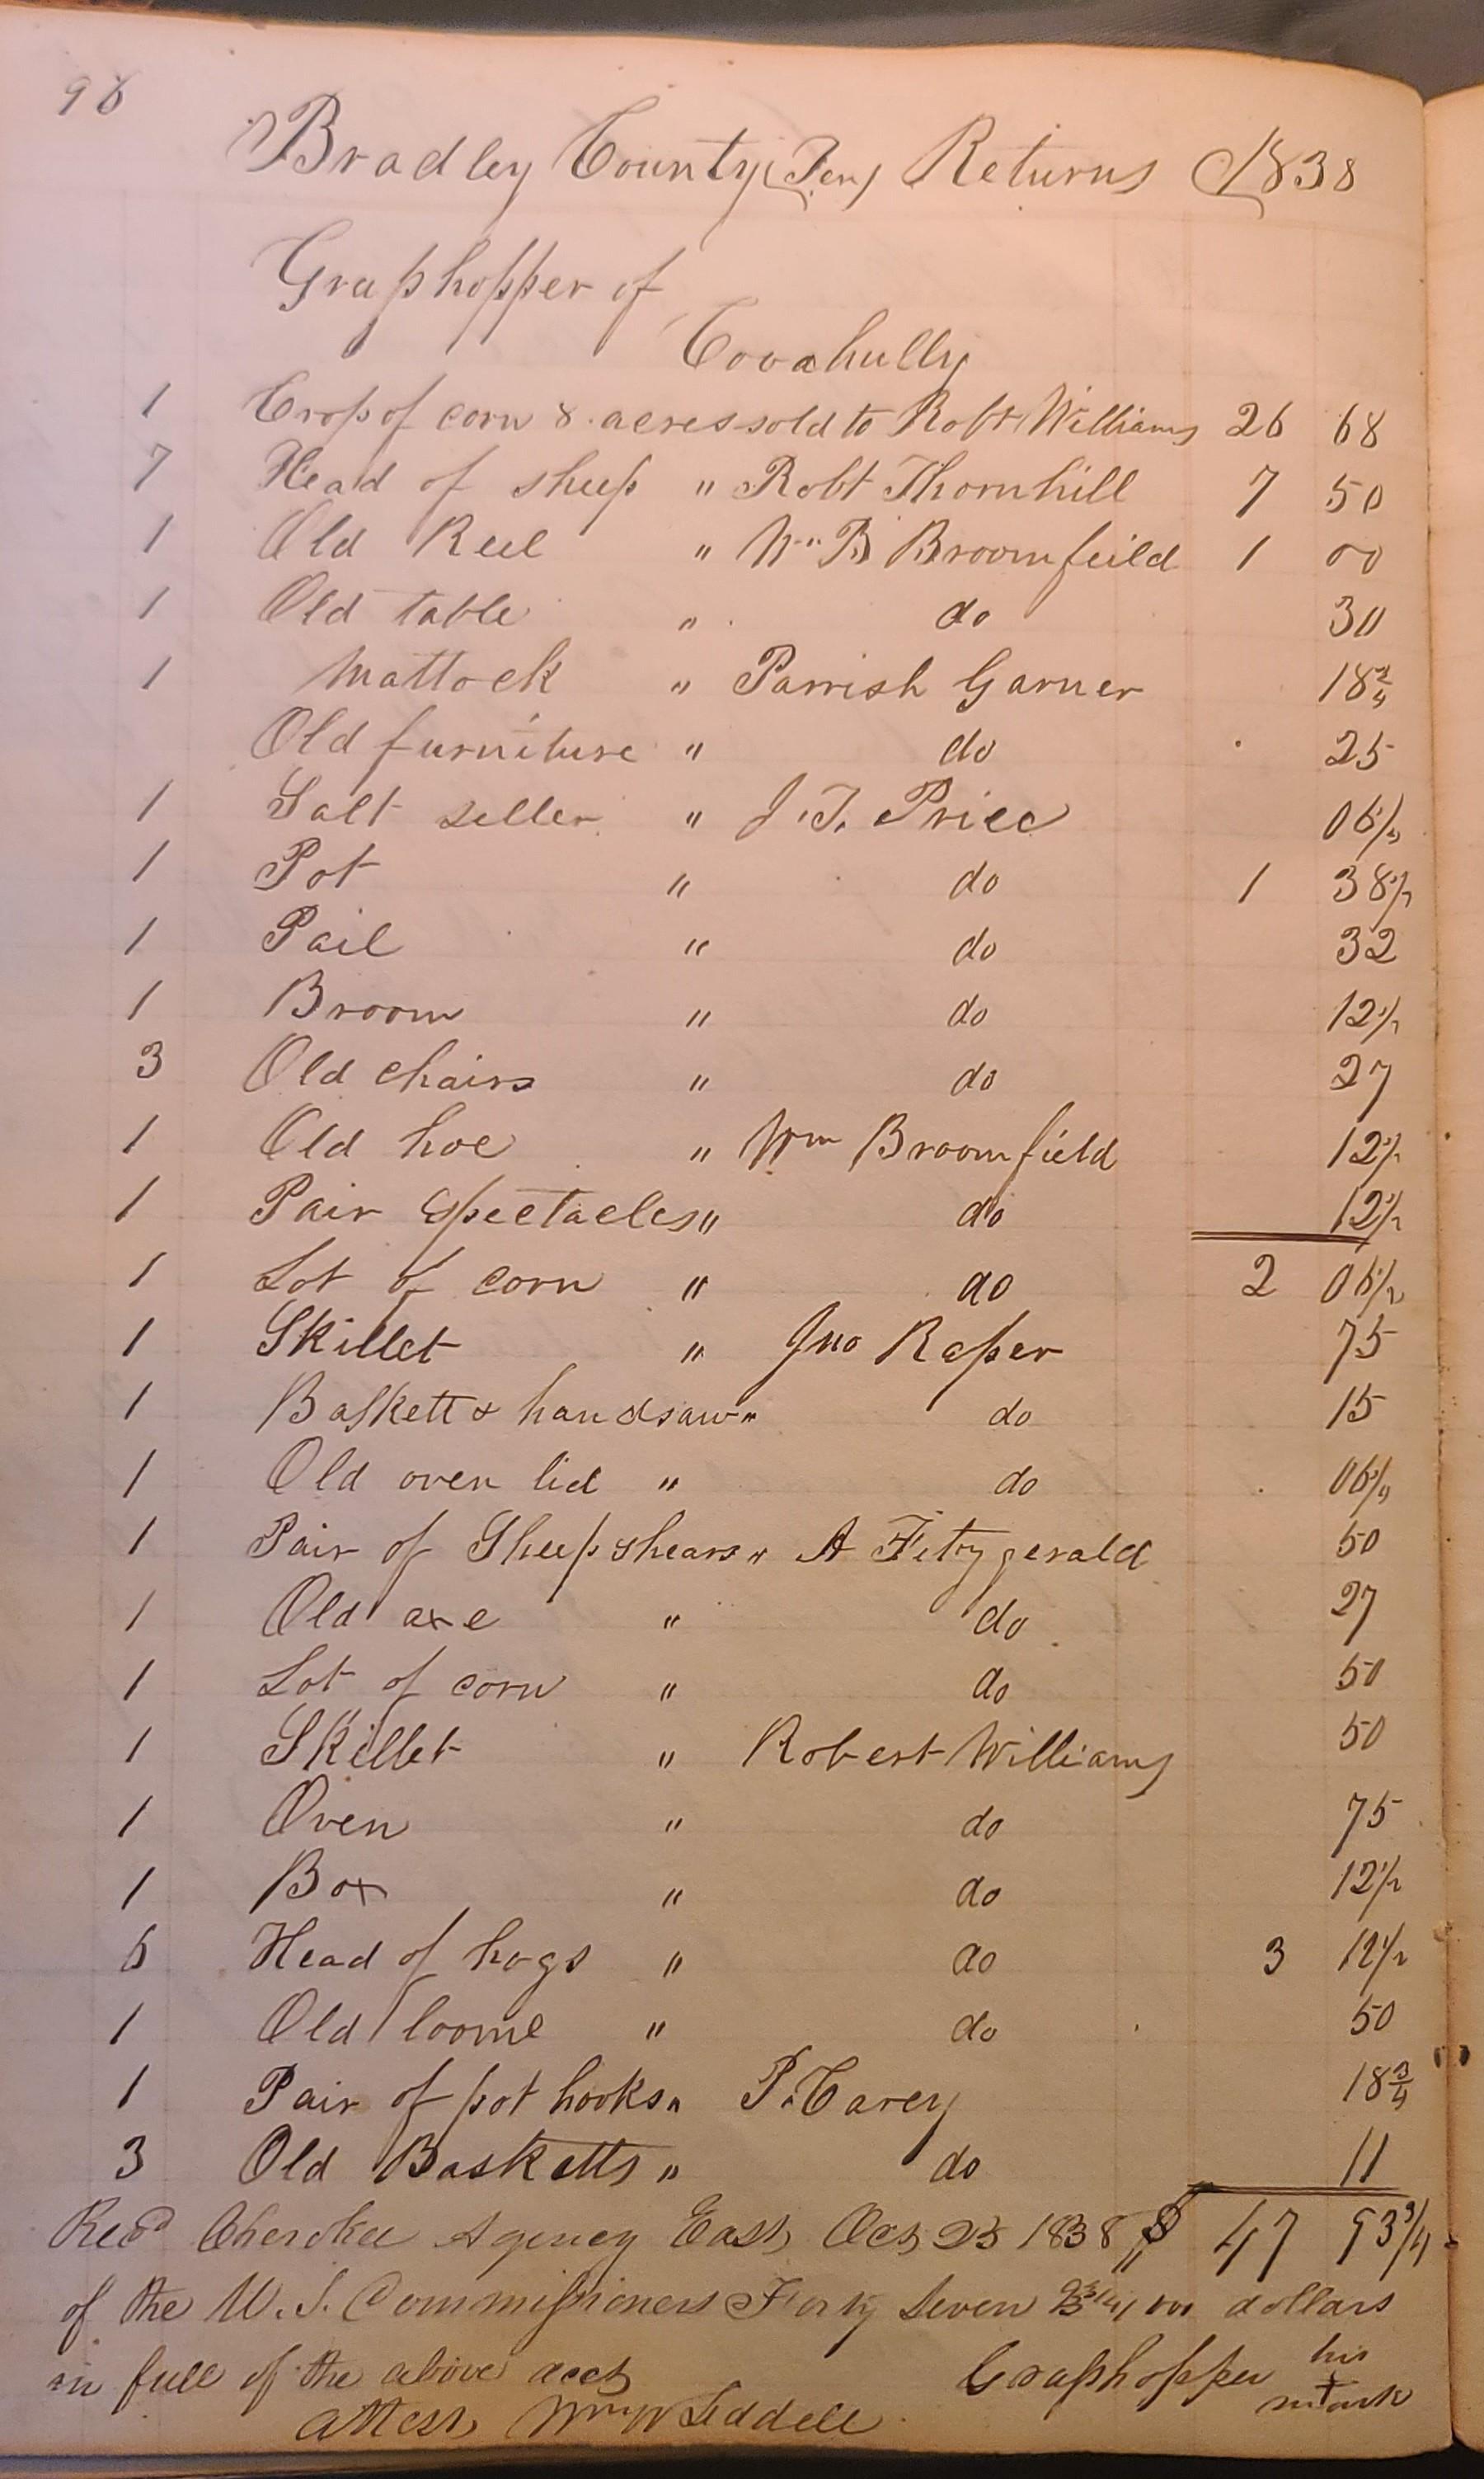 98
Bradley County (Ten) Returns 1838
Grasshopper of
Coosahully
1 Crop of corn 8 acres sold to Robt Williams 26 68
7 Head of sheep " Robt Thornhill 7 50
1 Old Reel " Wm B Broomfeild 1 00
1 Old table " do 30
1 Mattock " Parrish Garner 18 3/4
Old furniture " do 25
1 Salt seller " J. T. Price 06 1/4
1 Pot " do 1 38 1/2
1 Pail " do 32
1 Broom " do 12 1/2
3 Old chairs " do 27
1 Old hoe " Wm Broomfield 12 1/2
1 Pair Spectacles " do 12 1/2
1 Lot of corn " do 2 06 1/2
1 Skillet " Jno Raper 75
1 Baskett & handsaw " do 15
1 Old oven lid " do 06 1/4
1 Pair of Sheep shears " A Fitzgerald 50
1 Old axe " do 27
1 Lot of corn " do 50
1 Skillet " Robert Williams 50
1 Oven " do 75
1 Box " do 12 1/2
6 Head of hogs " do 3 12 1/2
1 Old loome " do 50
1 Pair of pot hooks " P. Carey 18 3/4
3 Old Basketts " do 11
Recd Cherokee Agency East, Oct 23 1838 " $ 47 93 3/4
of the U. S. Commissioners Forty Seven 93 3/4/100 dollars
in full of the above acct Grasshopper his x mark
Attest, Wm W Leddell